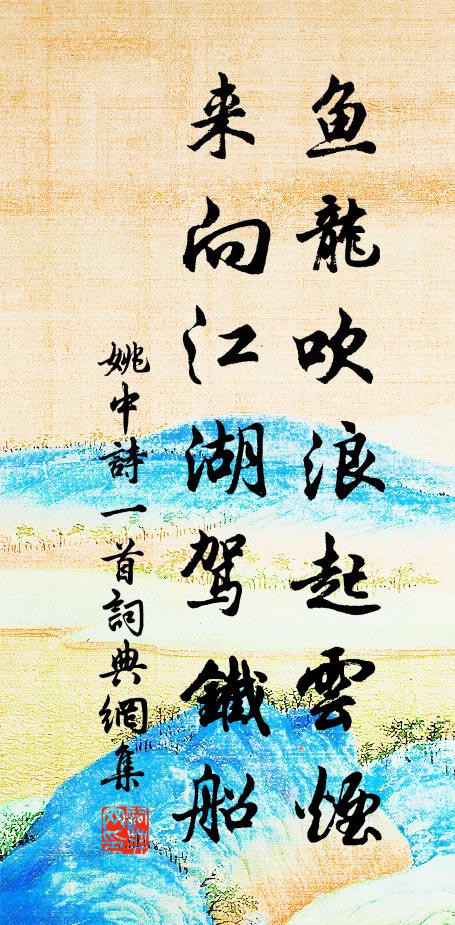 魚龍吹浪起雲煙
来向江湖駕鐵船
姚中詩一首詞典網集